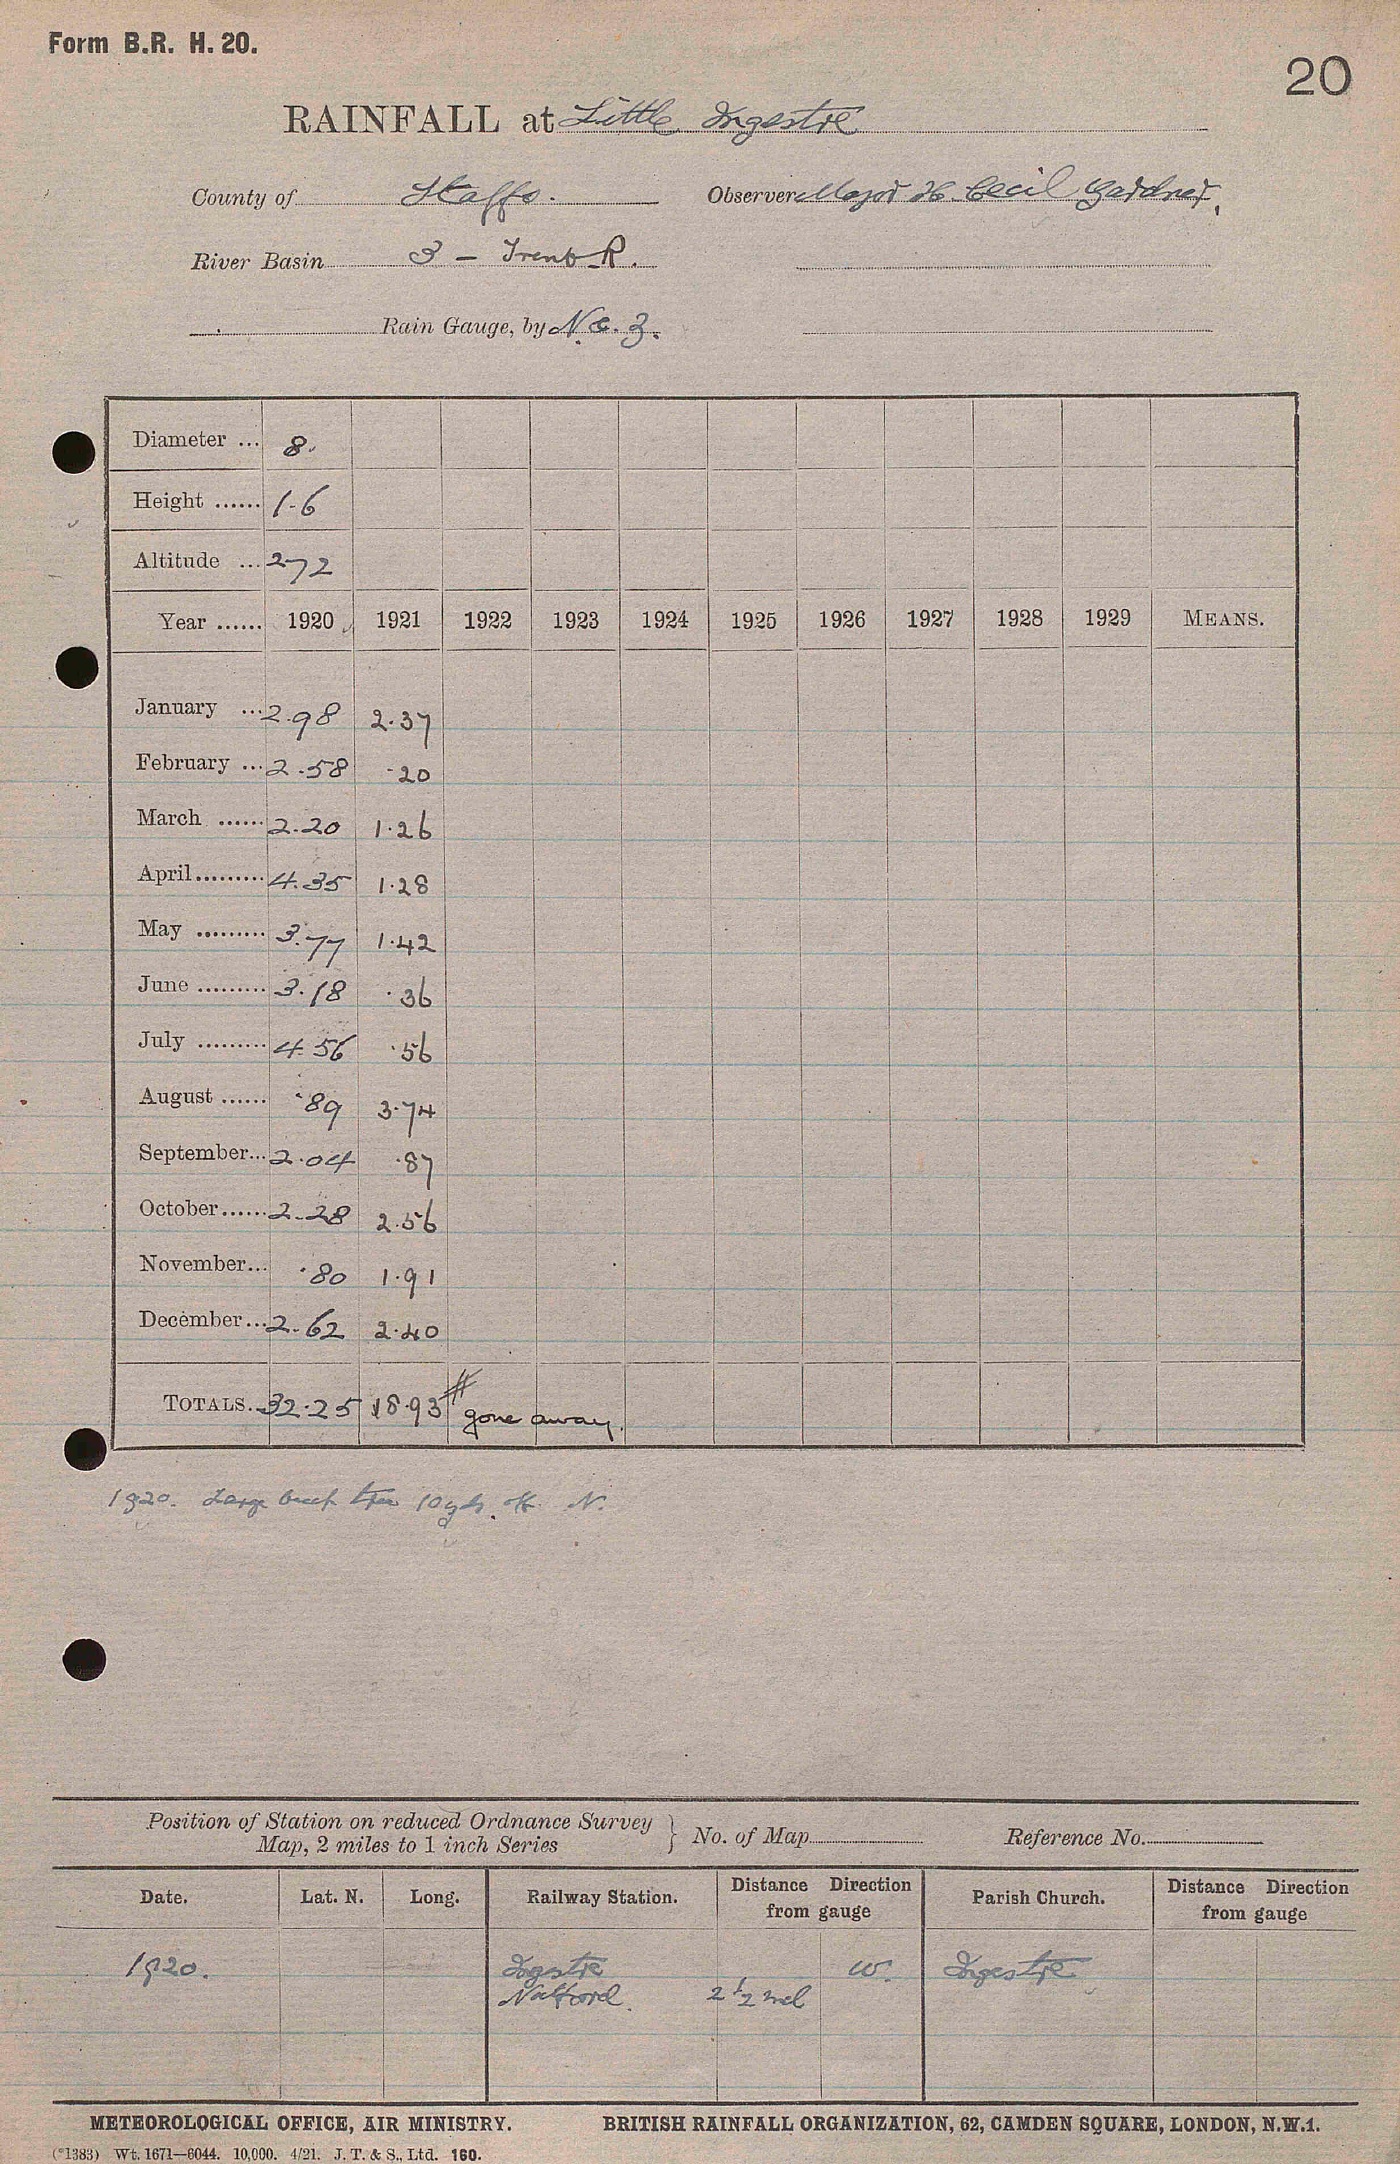 Form B.R. H. 20.
20
RAINFALL at Little Ingestre
County of Staffs. Observer Major H. Cecil Gardner,
River Basin 3 - Trent R.
Rain Gauge, by N. & Z.
Diameter ... 8.
Height ...... 1-6
Altitude ... 272
Year ...... 1920 1921 1922 1923 1924 1925 1926 1927 1928 1929 MEANS.
January ... 2.98 2.37
February ... 2.58 .20
March ...... 2.20 1.26
April ......... 4.35 1.28
May ......... 3.77 1.42
June ......... 3.18 .36
July ......... 4.56 .56
August ...... .89 3.74
September... 2.04 .87
October...... 2.28 2.56
November... .80 1.91
December... 2.62 2.40
TOTALS... 32.25 18.93 # gone away.
1920. Large beech tree 10 yds. off N.
Position of Station on reduced Ordnance Survey } No. of Map Reference No.
Map, 2 miles to 1 inch Series
Date. Lat. N. Long. Railway Station. Distance Direction from gauge Parish Church. Distance Direction from gauge
1920. Ingestre W. Ingestre
2 1/2 ml
METEOROLOGICAL OFFICE, AIR MINISTRY. BRITISH RAINFALL ORGANIZATION, 62, CAMDEN SQUARE, LONDON, N.W.1.
(*1383) Wt. 1671—6044. 10,000. 4/21. J. T. & S., Ltd. 160.